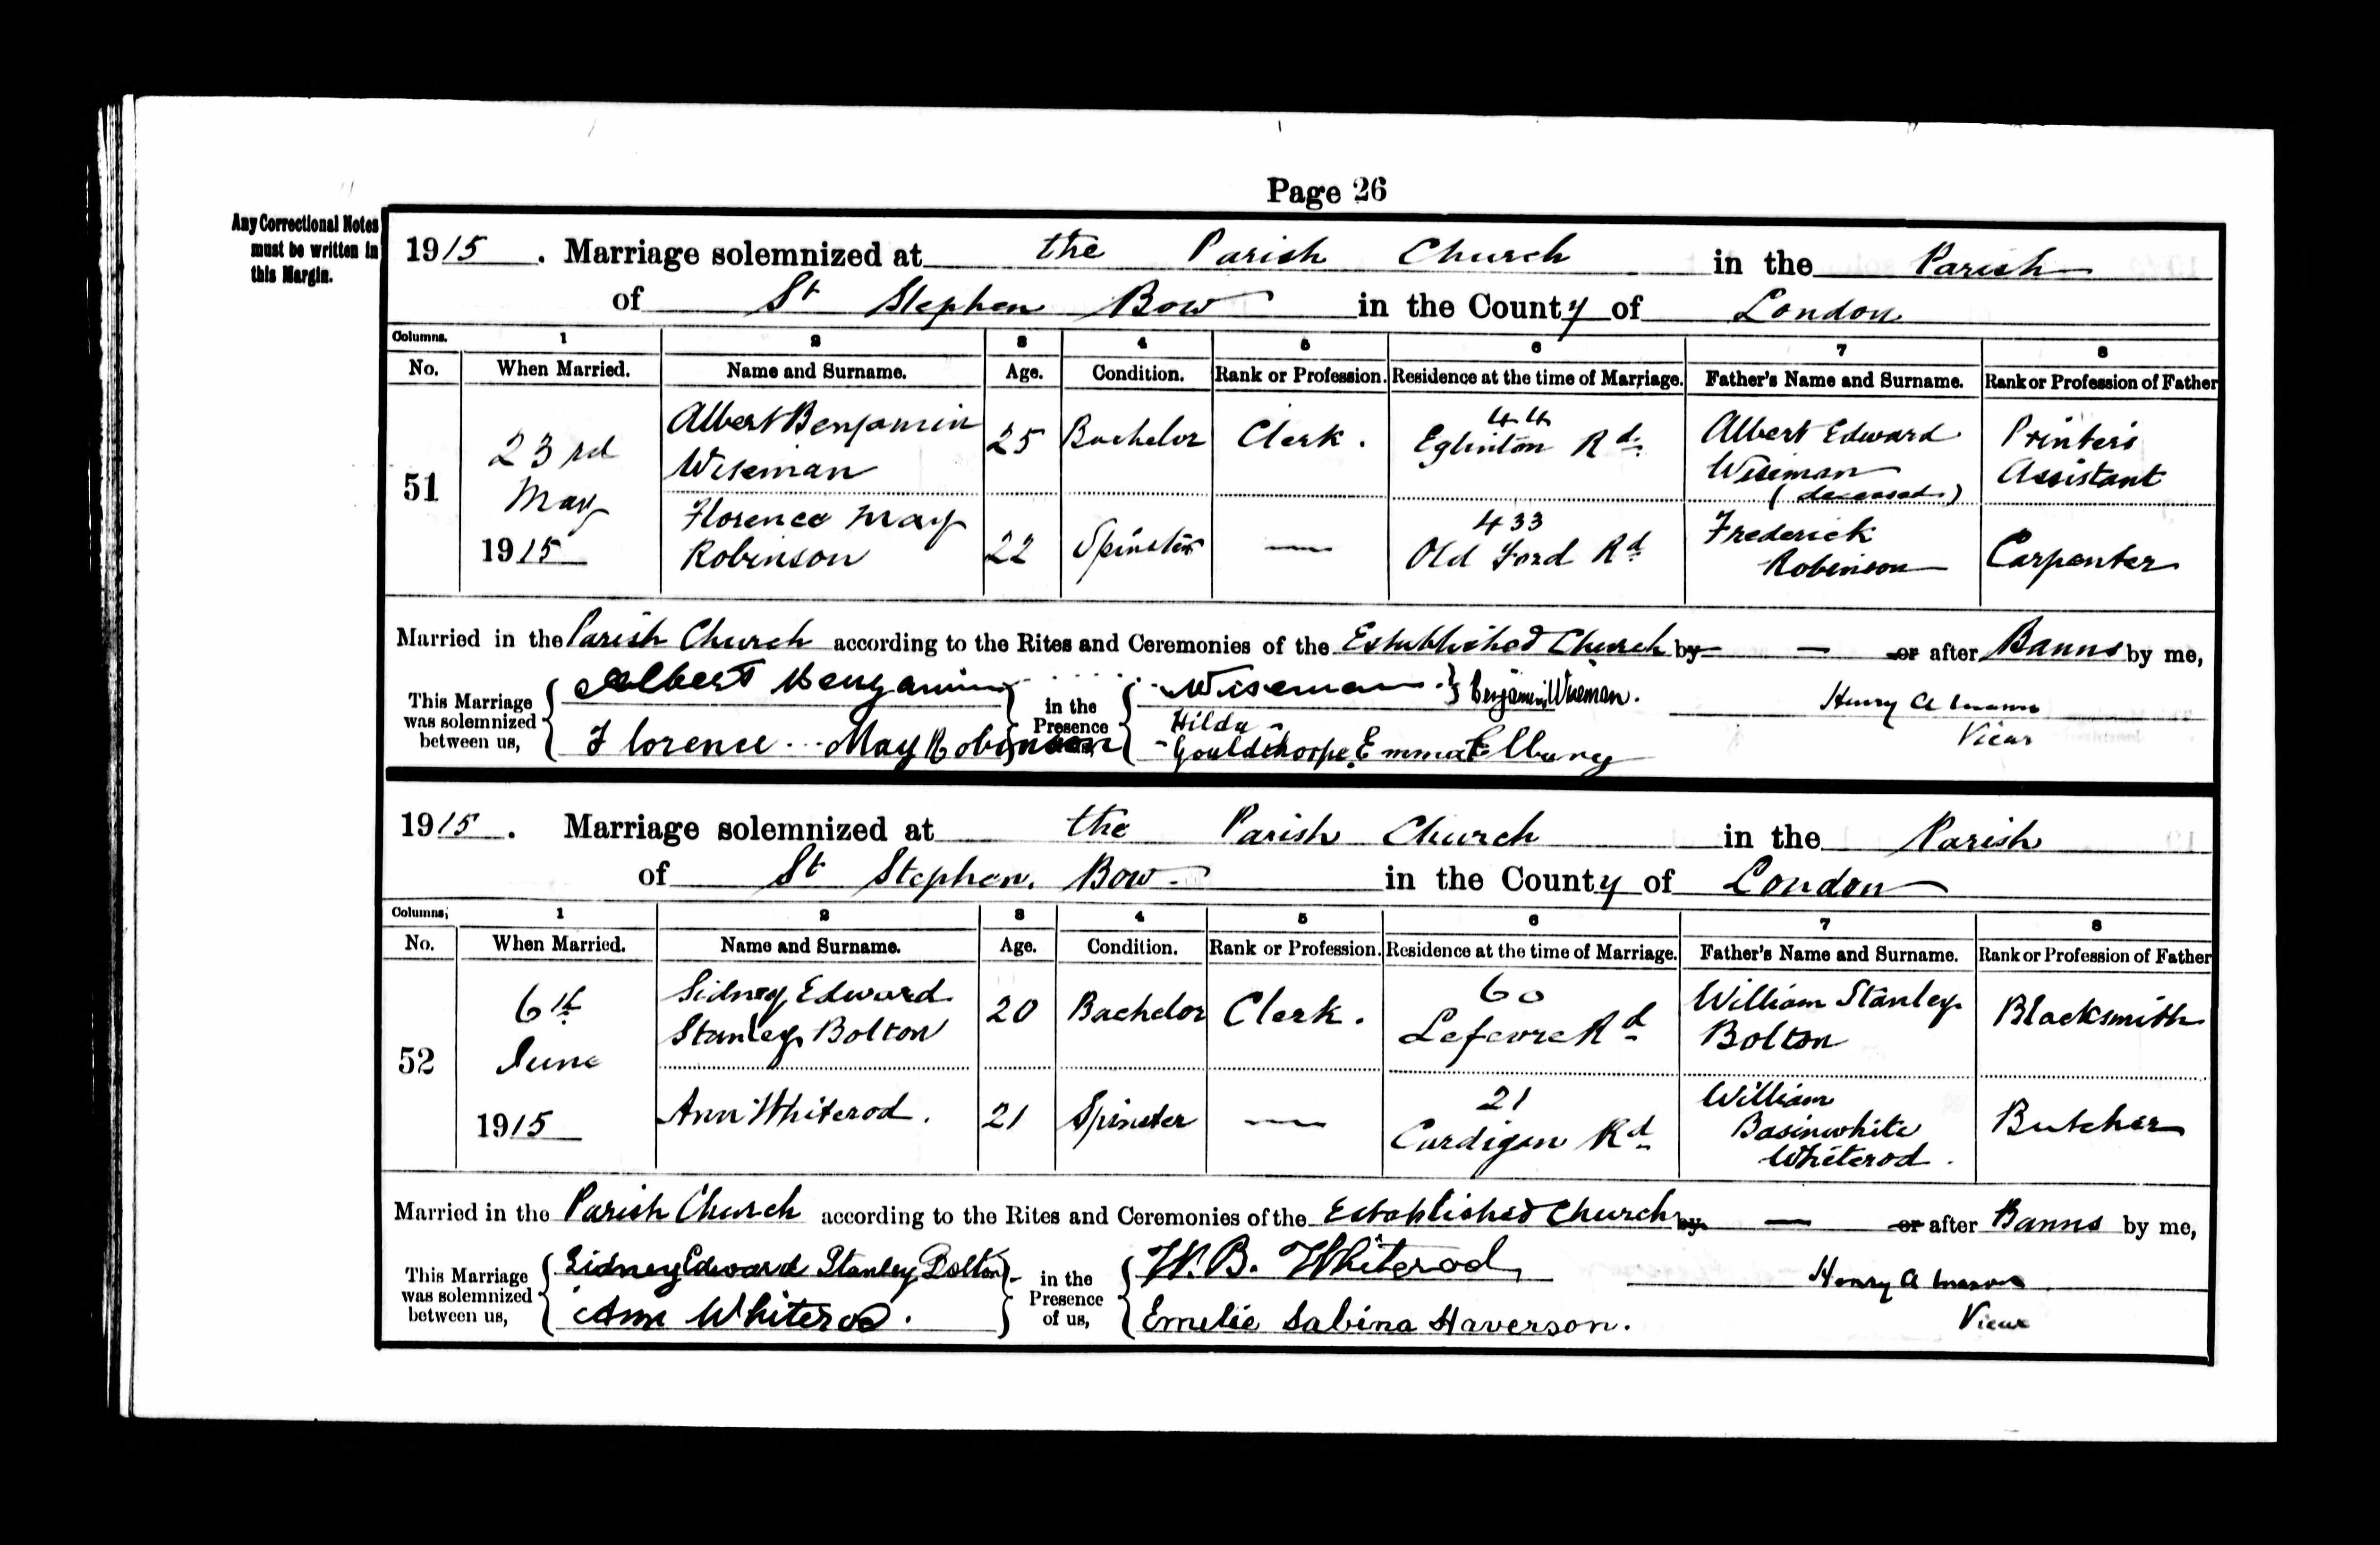 Page 26
Any Correctional Notes
must be written in
this Margin.
1915. Marriage solemnized at the Parish Church in the Parish
of St Stephen Bow in the County of London
Columns. 1 2 3 4 5 6 7 8
No. When Married. Name and Surname. Age. Condition. Rank or Profession. Residence at the time of Marriage. Father's Name and Surname. Rank or Profession of Father
51 23rd May 1915
Albert Benjamin Wiseman 25 Bachelor Clerk. 44 Eglinton Rd. Albert Edward Wiseman (deceased) Printer's Assistant
Florence May Robinson 22 Spinster — 433 Old Ford Rd Frederick Robinson Carpenter
Married in the Parish Church according to the Rites and Ceremonies of the Established Church by — or after Banns by me,
This Marriage was solemnized between us, Albert Benjamin Wiseman in the Presence Benjamin Wiseman. Henry A
Florence May Robinson Hilda Gouldthorpe. Emma Vicar
1915. Marriage solemnized at the Parish Church in the Parish
of St Stephen. Bow in the County of London
Columns; 1 2 3 4 5 6 7 8
No. When Married. Name and Surname. Age. Condition. Rank or Profession. Residence at the time of Marriage. Father's Name and Surname. Rank or Profession of Father
52 6th June 1915
Sidney Edward Stanley Bolton 20 Bachelor Clerk. 60 Lefevre Rd William Stanley Bolton Blacksmith
Ann Whiterod. 21 Spinster — 21 Cardigan Rd William Basinwhite Whiterod. Butcher
Married in the Parish Church according to the Rites and Ceremonies of the Established Church by — or after Banns by me,
This Marriage was solemnized between us, Sidney Edward Stanley Bolton in the Presence of us, W. B. Whiterod Henry A
Ann Whiterod. Emelie Sabina Haverson. Vicar